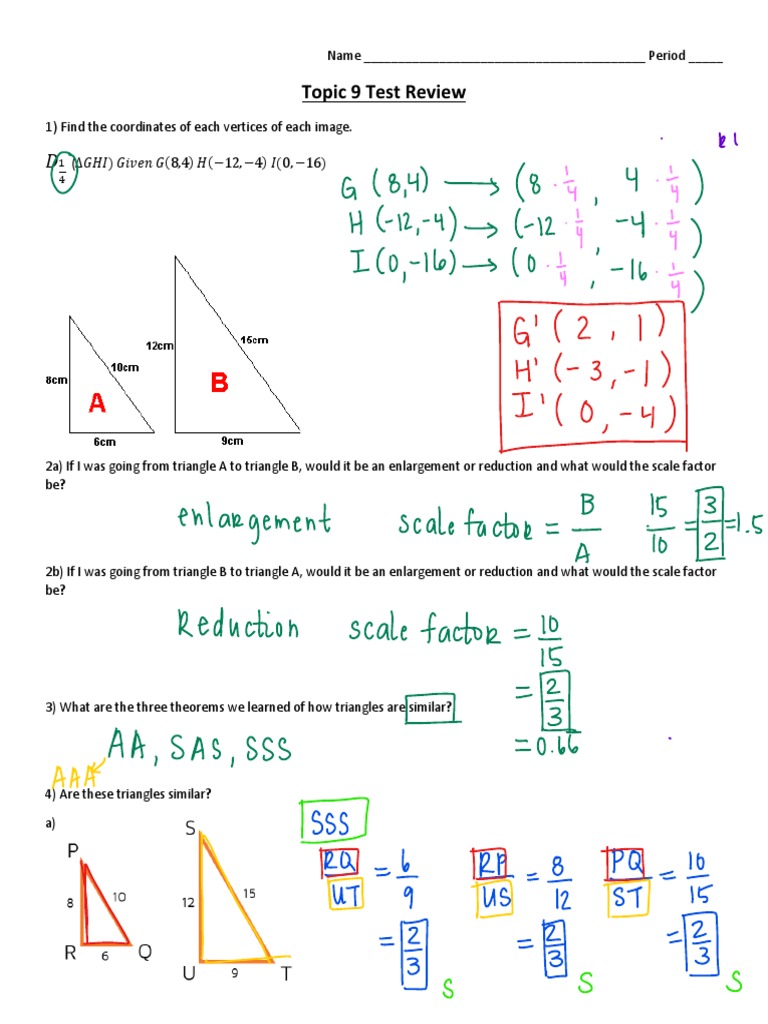 Name ______________________________________ Period _____
Topic 9 Test Review
1) Find the coordinates of each vertices of each image.
D 1/4 (∆GHI) Given G(8,4) H(−12,−4) I(0,−16)
G (8,4) → (8 · 1/4 , 4 · 1/4)
H (-12,-4) → (-12 · 1/4 , -4 · 1/4)
I (0,-16) → (0 · 1/4 , -16 · 1/4)
G' (2 , 1)
H' (-3 , -1)
I' (0 , -4)
8cm
10cm
A
6cm
12cm
15cm
B
9cm
2a) If I was going from triangle A to triangle B, would it be an enlargement or reduction and what would the scale factor
be?
enlargement scale factor = B/A 15/10 = 3/2 = 1.5
2b) If I was going from triangle B to triangle A, would it be an enlargement or reduction and what would the scale factor
be?
Reduction scale factor = 10/15
= 2/3
= 0.66
3) What are the three theorems we learned of how triangles are similar?
AA, SAS, SSS
AAA
4) Are these triangles similar?
a)
P
8
10
R
6
Q
S
12
15
U
9
T
SSS
RQ/UT = 6/9
= 2/3
S
RP/US = 8/12
= 2/3
S
PQ/ST = 10/15
= 2/3
S